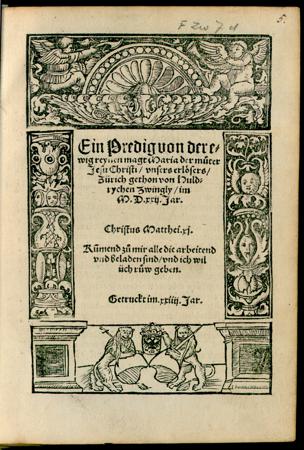 F Zw 7 d
5.
Ein Predig von der e-
wig reynen magt Maria der můter
Jesu Christi / vnsers erlösers /
Zürich gethon von Huld-
rychen Zwingly / im
M. D. xxij. Jar.
Christus Matthei. xj.
Kůmend zů mir alle die arbeitend
vnd beladen sind / vnd ich wil
üch růw geben.
Getruckt im. xxiiij. Jar.